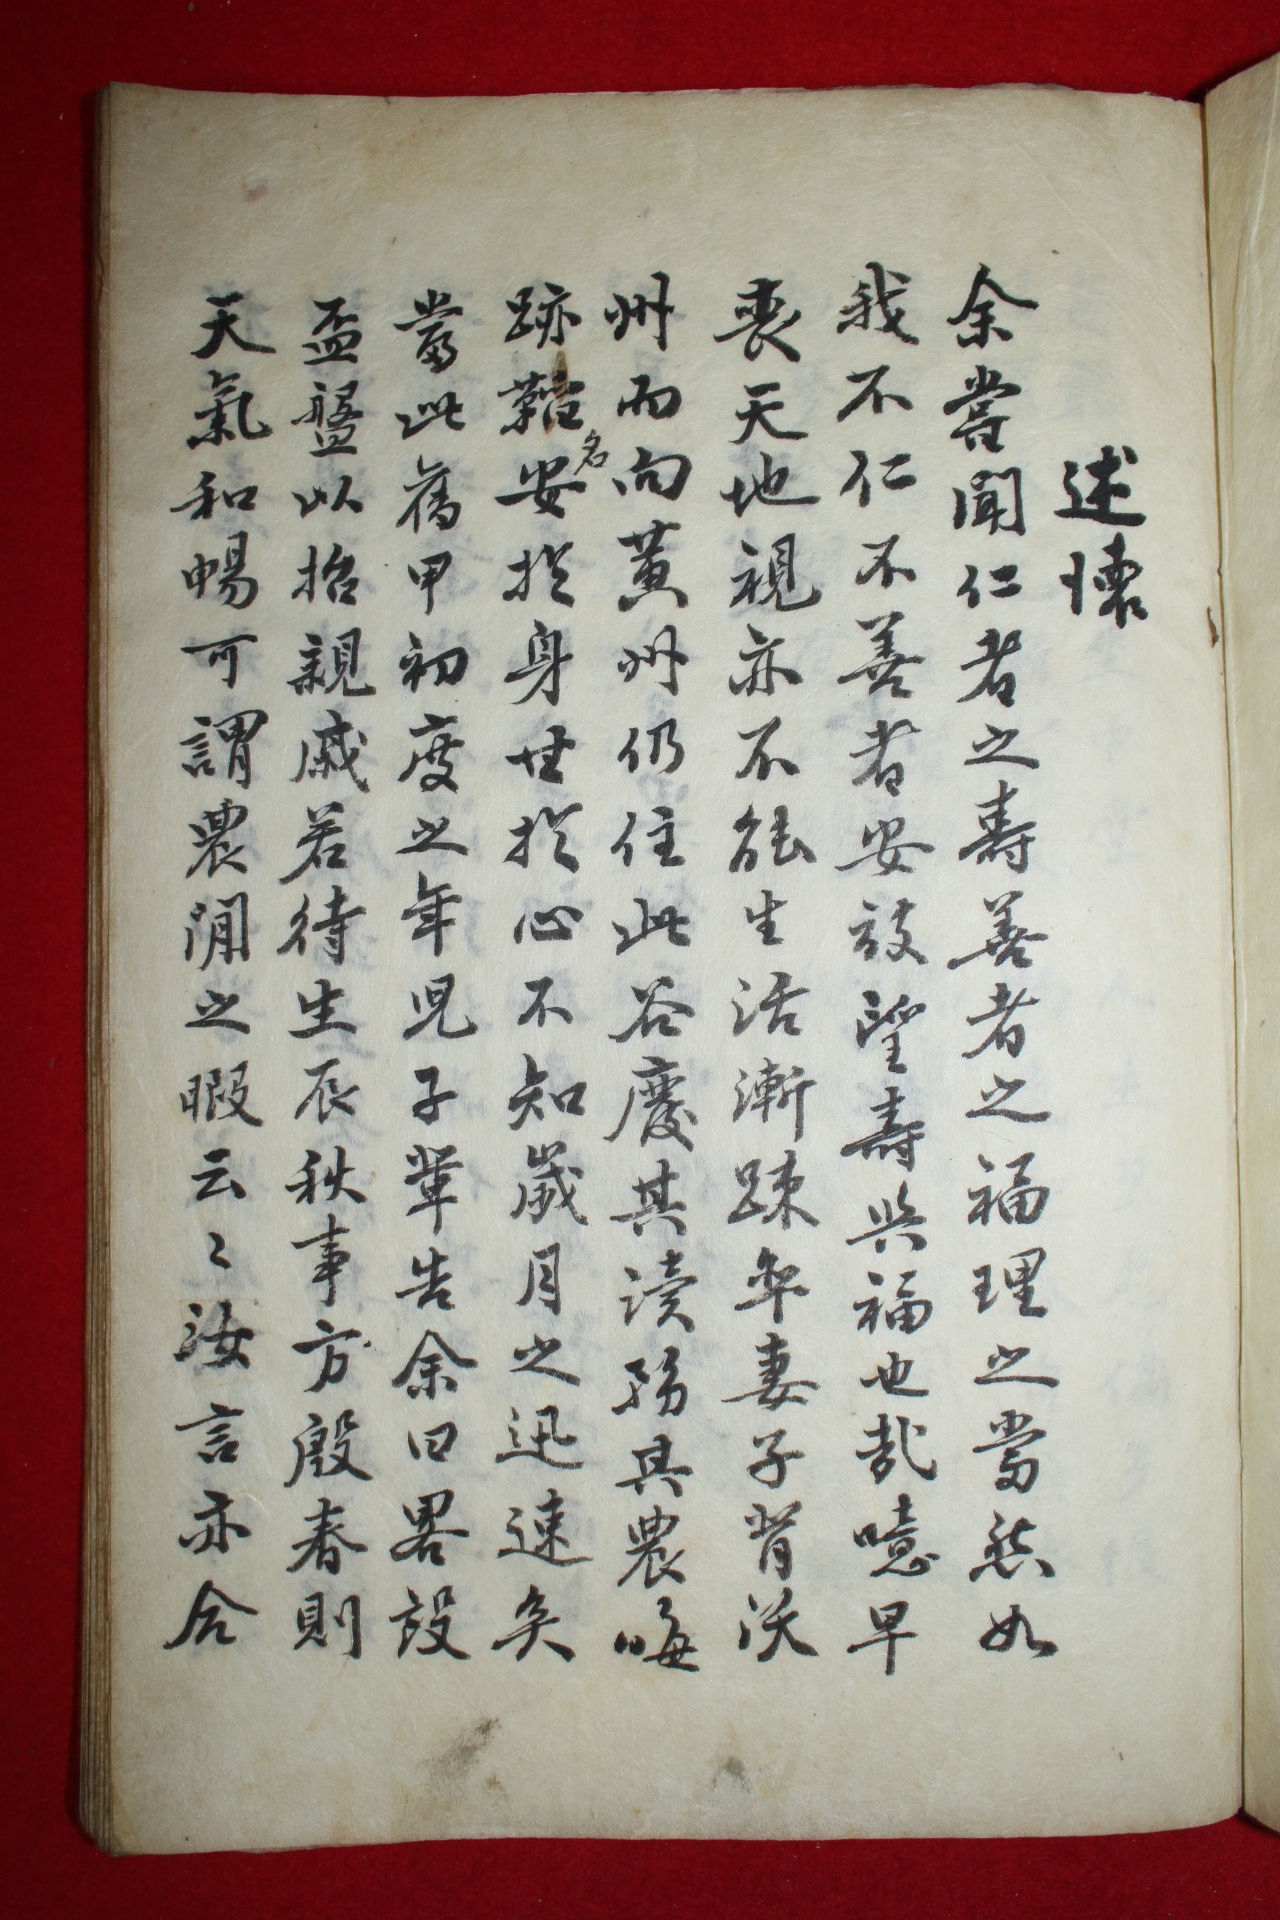 述懷
余嘗聞仁者之壽善者之福理之當然如
我不仁不善者安敢望壽與福也哉噫早
喪天地視亦不能生活漸踈率妻子背沃
州而向黃州仍住此谷慶其讀務其農晦
跡韜名安於身世於心不知歲月之迅速矣
當此舊甲初度之年児子輩告余曰畧設
盃盤以招親戚若待生辰秋事方殷春則
天氣和暢可謂農閒之暇云〻汝言亦合